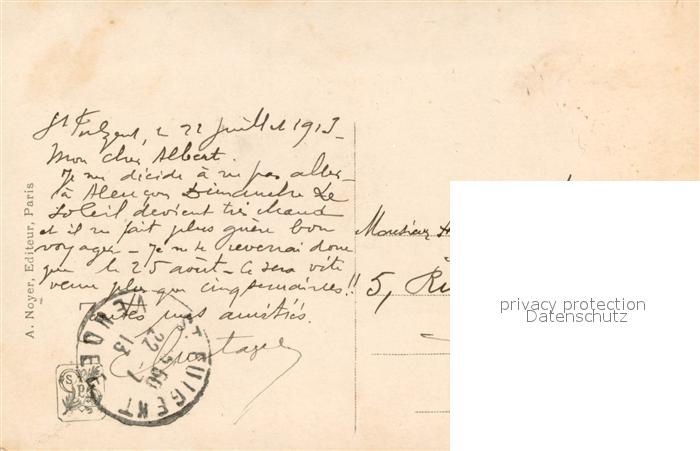 St Fulgent, le 22 juillet 1913_
Mon cher Albert.
Je me décide à ne pas aller
à Alençon Dimanche. Le
soleil devient très chaud
et il ne fait plus guère bon
voyager_ Je ne te reverrai donc
que le 25 août_ Ce sera vite
venu plus que cinq semaines!!
Toutes mes amitiés.
A. Noyer, Editeur, Paris
ST FULGENT
22 -7
13
VENDEE
Monsieur
5, Ru
privacy protection
Datenschutz